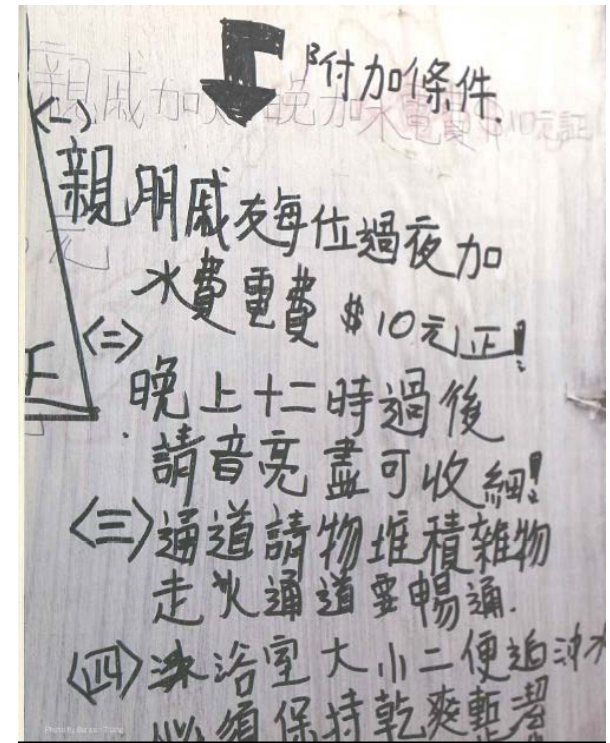 附加條件.
<一>
親朋戚友每位過夜加
水費電費 $10元正!
<二>
晚上十二時過後
請音亮盡可收細!
<三>通道請物堆積雜物
走火通道要暢通.
<四>沐浴室大小二便 沖水
必須保持乾爽 潔